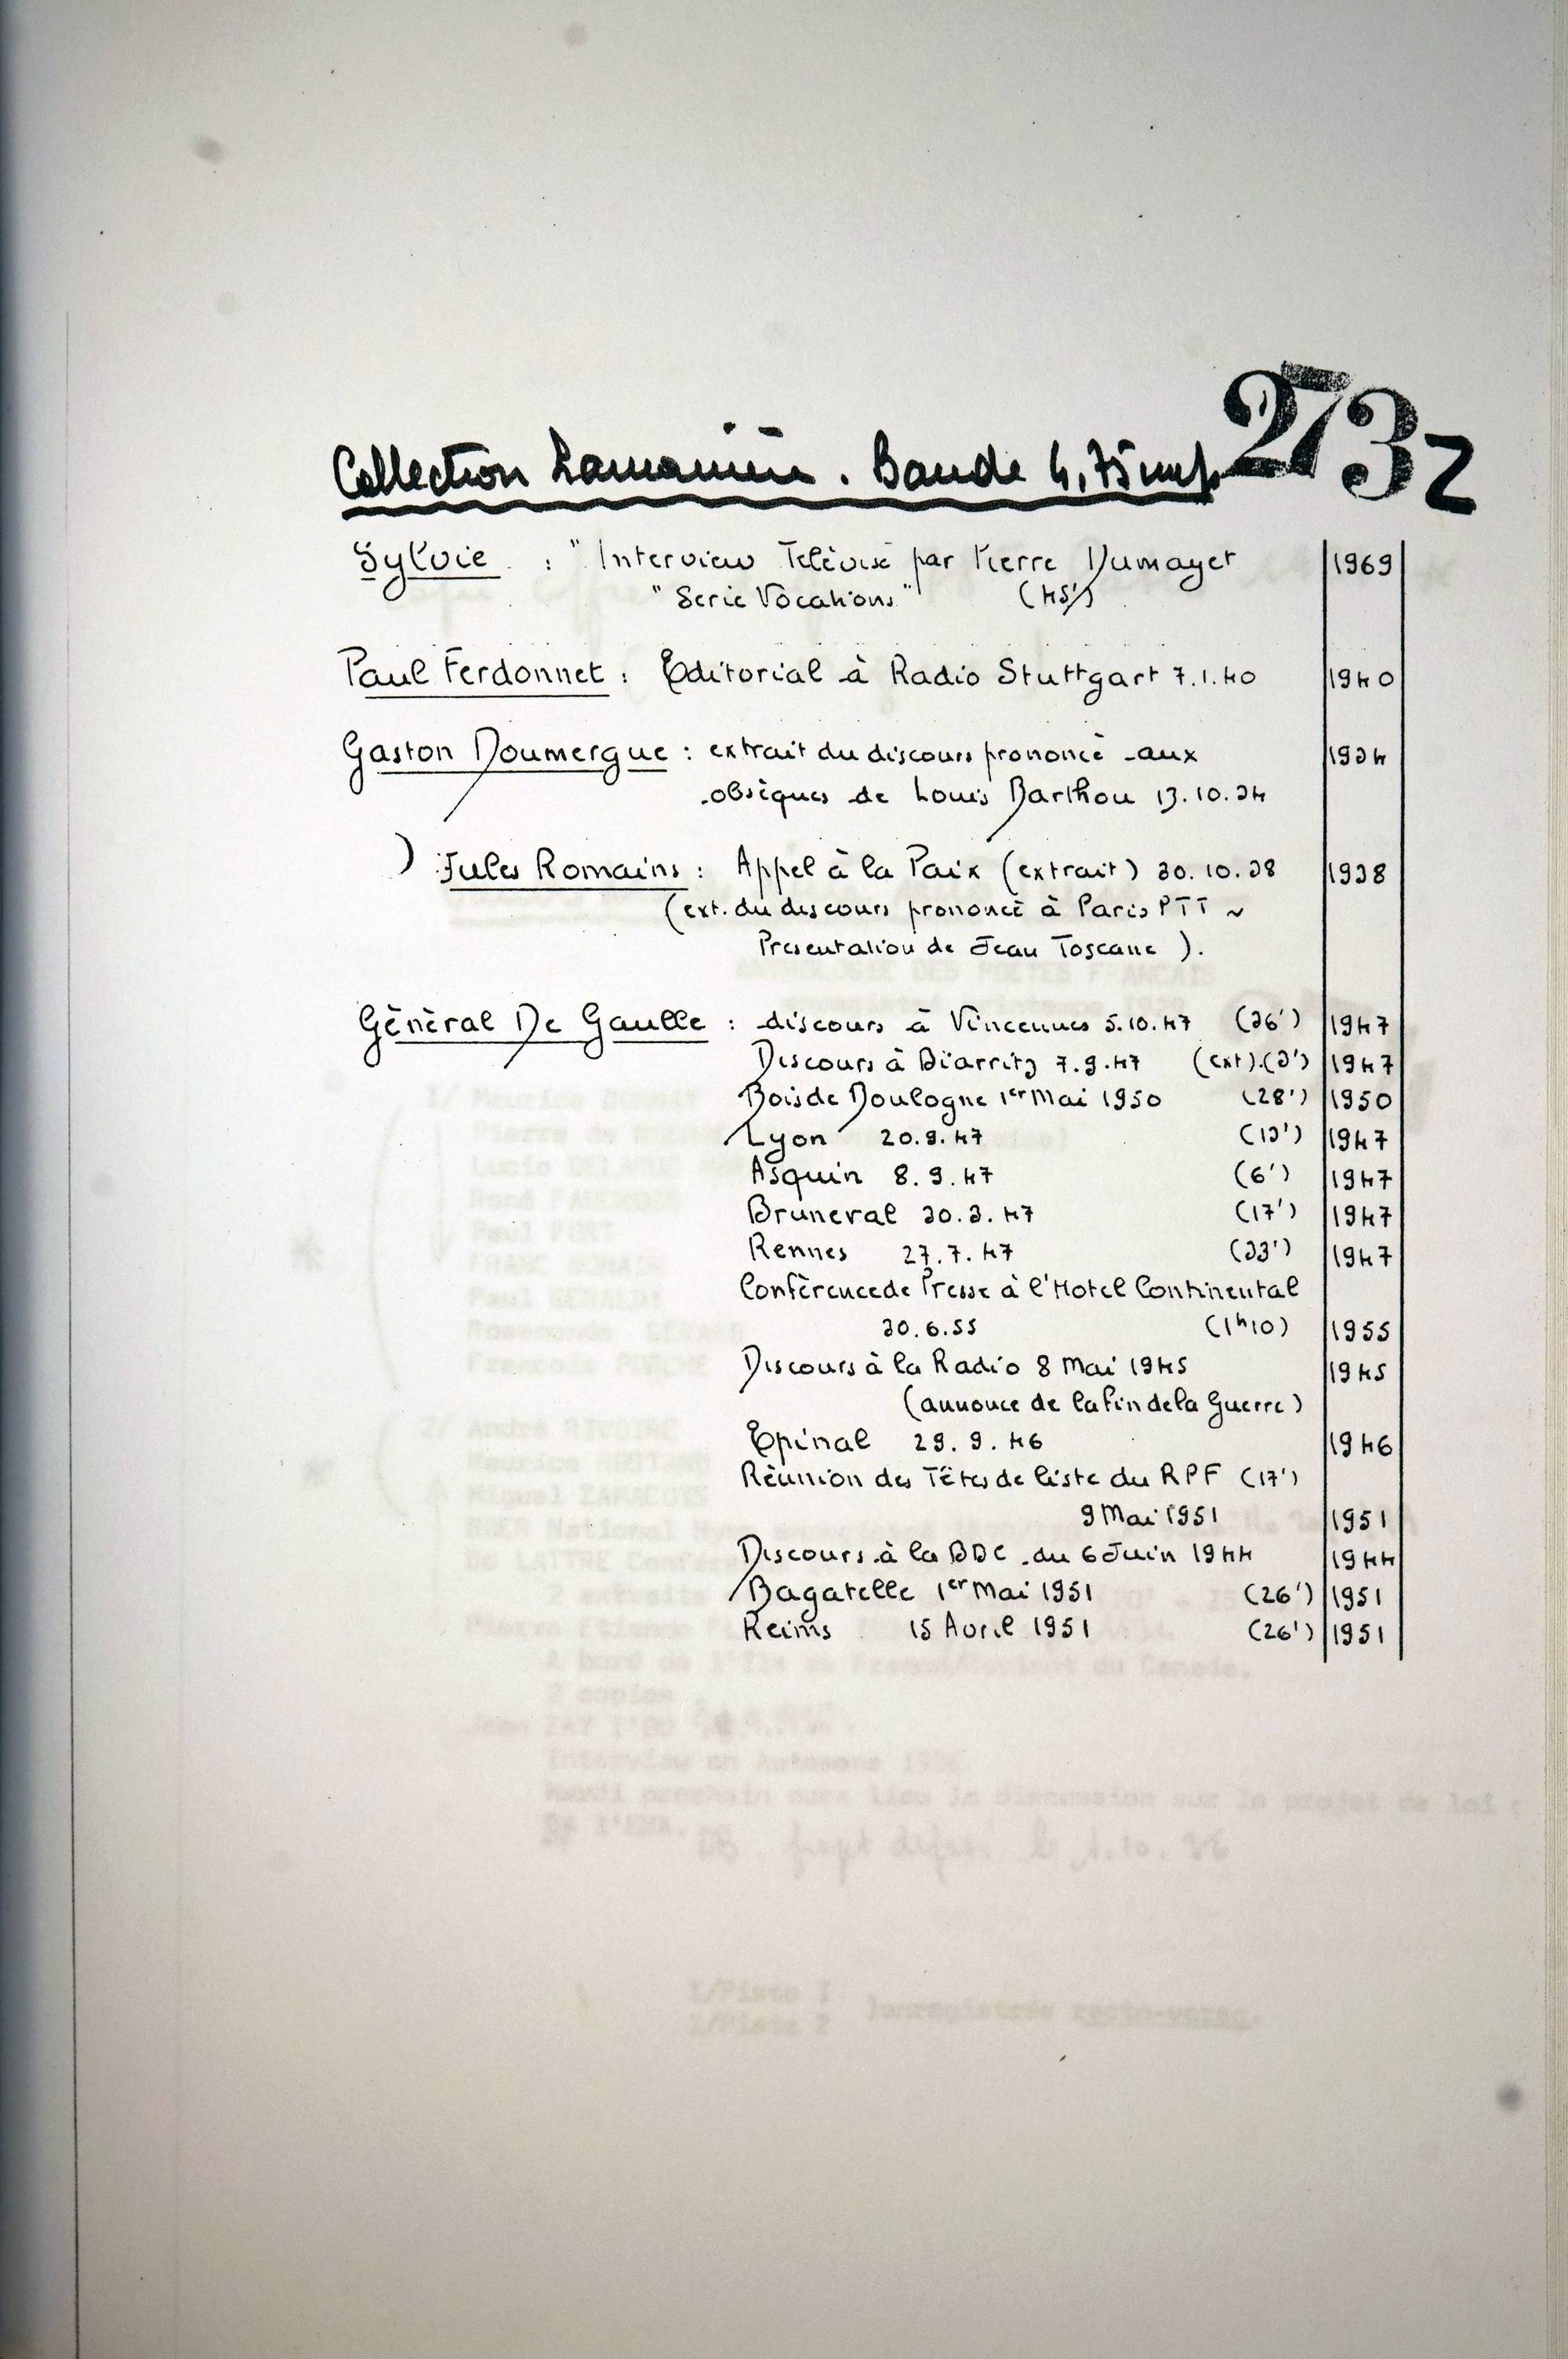 273z
Collection Lamarière. Bande 4,75 mp
Sylvie : "Interview Télévisé par Pierre Dumayet 1969
"Serie Vocations" (45')
Paul Ferdonnet : Editorial à Radio Stuttgart 7.1.40 1940
Gaston Doumergue : extrait du discours prononcé aux 1934
obsèques de Louis Barthou 13.10.34
) Jules Romains : Appel à la Paix (extrait) 30.10.38 1938
(ext. du discours prononcé à Paris PTT ~
Presentation de Jean Toscane ).
Général De Gaulle : discours à Vincennes 5.10.47 (36') 1947
Discours à Biarritz 7.9.47 (ext).(3') 1947
Bois de Boulogne 1er Mai 1950 (28') 1950
Lyon 20.9.47 (13') 1947
Asquin 8.9.47 (6') 1947
Bruneval 30.3.47 (17') 1947
Rennes 27.7.47 (33') 1947
Conférence de Presse à l'Hotel Continental
30.6.55 (1h10) 1955
Discours à la Radio 8 Mai 1945 1945
(annonce de la fin de la Guerre)
Epinal 29.9.46 1946
Réunion des Têtes de liste du RPF (17')
9 Mai 1951 1951
Discours à la BBC du 6 Juin 1944 1944
Bagatelle 1er Mai 1951 (26') 1951
Reims 15 Avril 1951 (26') 1951